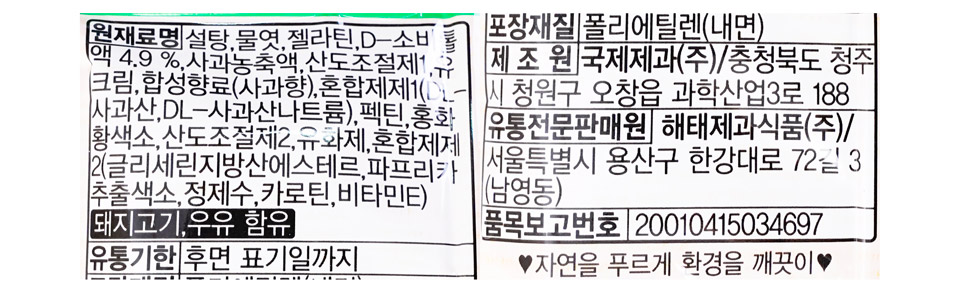 원재료명 설탕,물엿,젤라틴,D-소비톨
액 4.9 %,사과농축액,산도조절제1,유
크림,합성향료(사과향),혼합제제1(DL-
사과산,DL-사과산나트륨),펙틴,홍화
황색소,산도조절제2,유화제,혼합제제
2(글리세린지방산에스테르,파프리카
추출색소,정제수,카로틴,비타민E)
돼지고기,우유 함유
유통기한 후면 표기일까지
포장재질 폴리에틸렌(내면)
제 조 원 국제제과(주)/충청북도 청주
시 청원구 오창읍 과학산업3로 188
유통전문판매원 해태제과식품(주)/
서울특별시 용산구 한강대로 72길 3
(남영동)
품목보고번호 20010415034697
♥자연을 푸르게 환경을 깨끗이♥